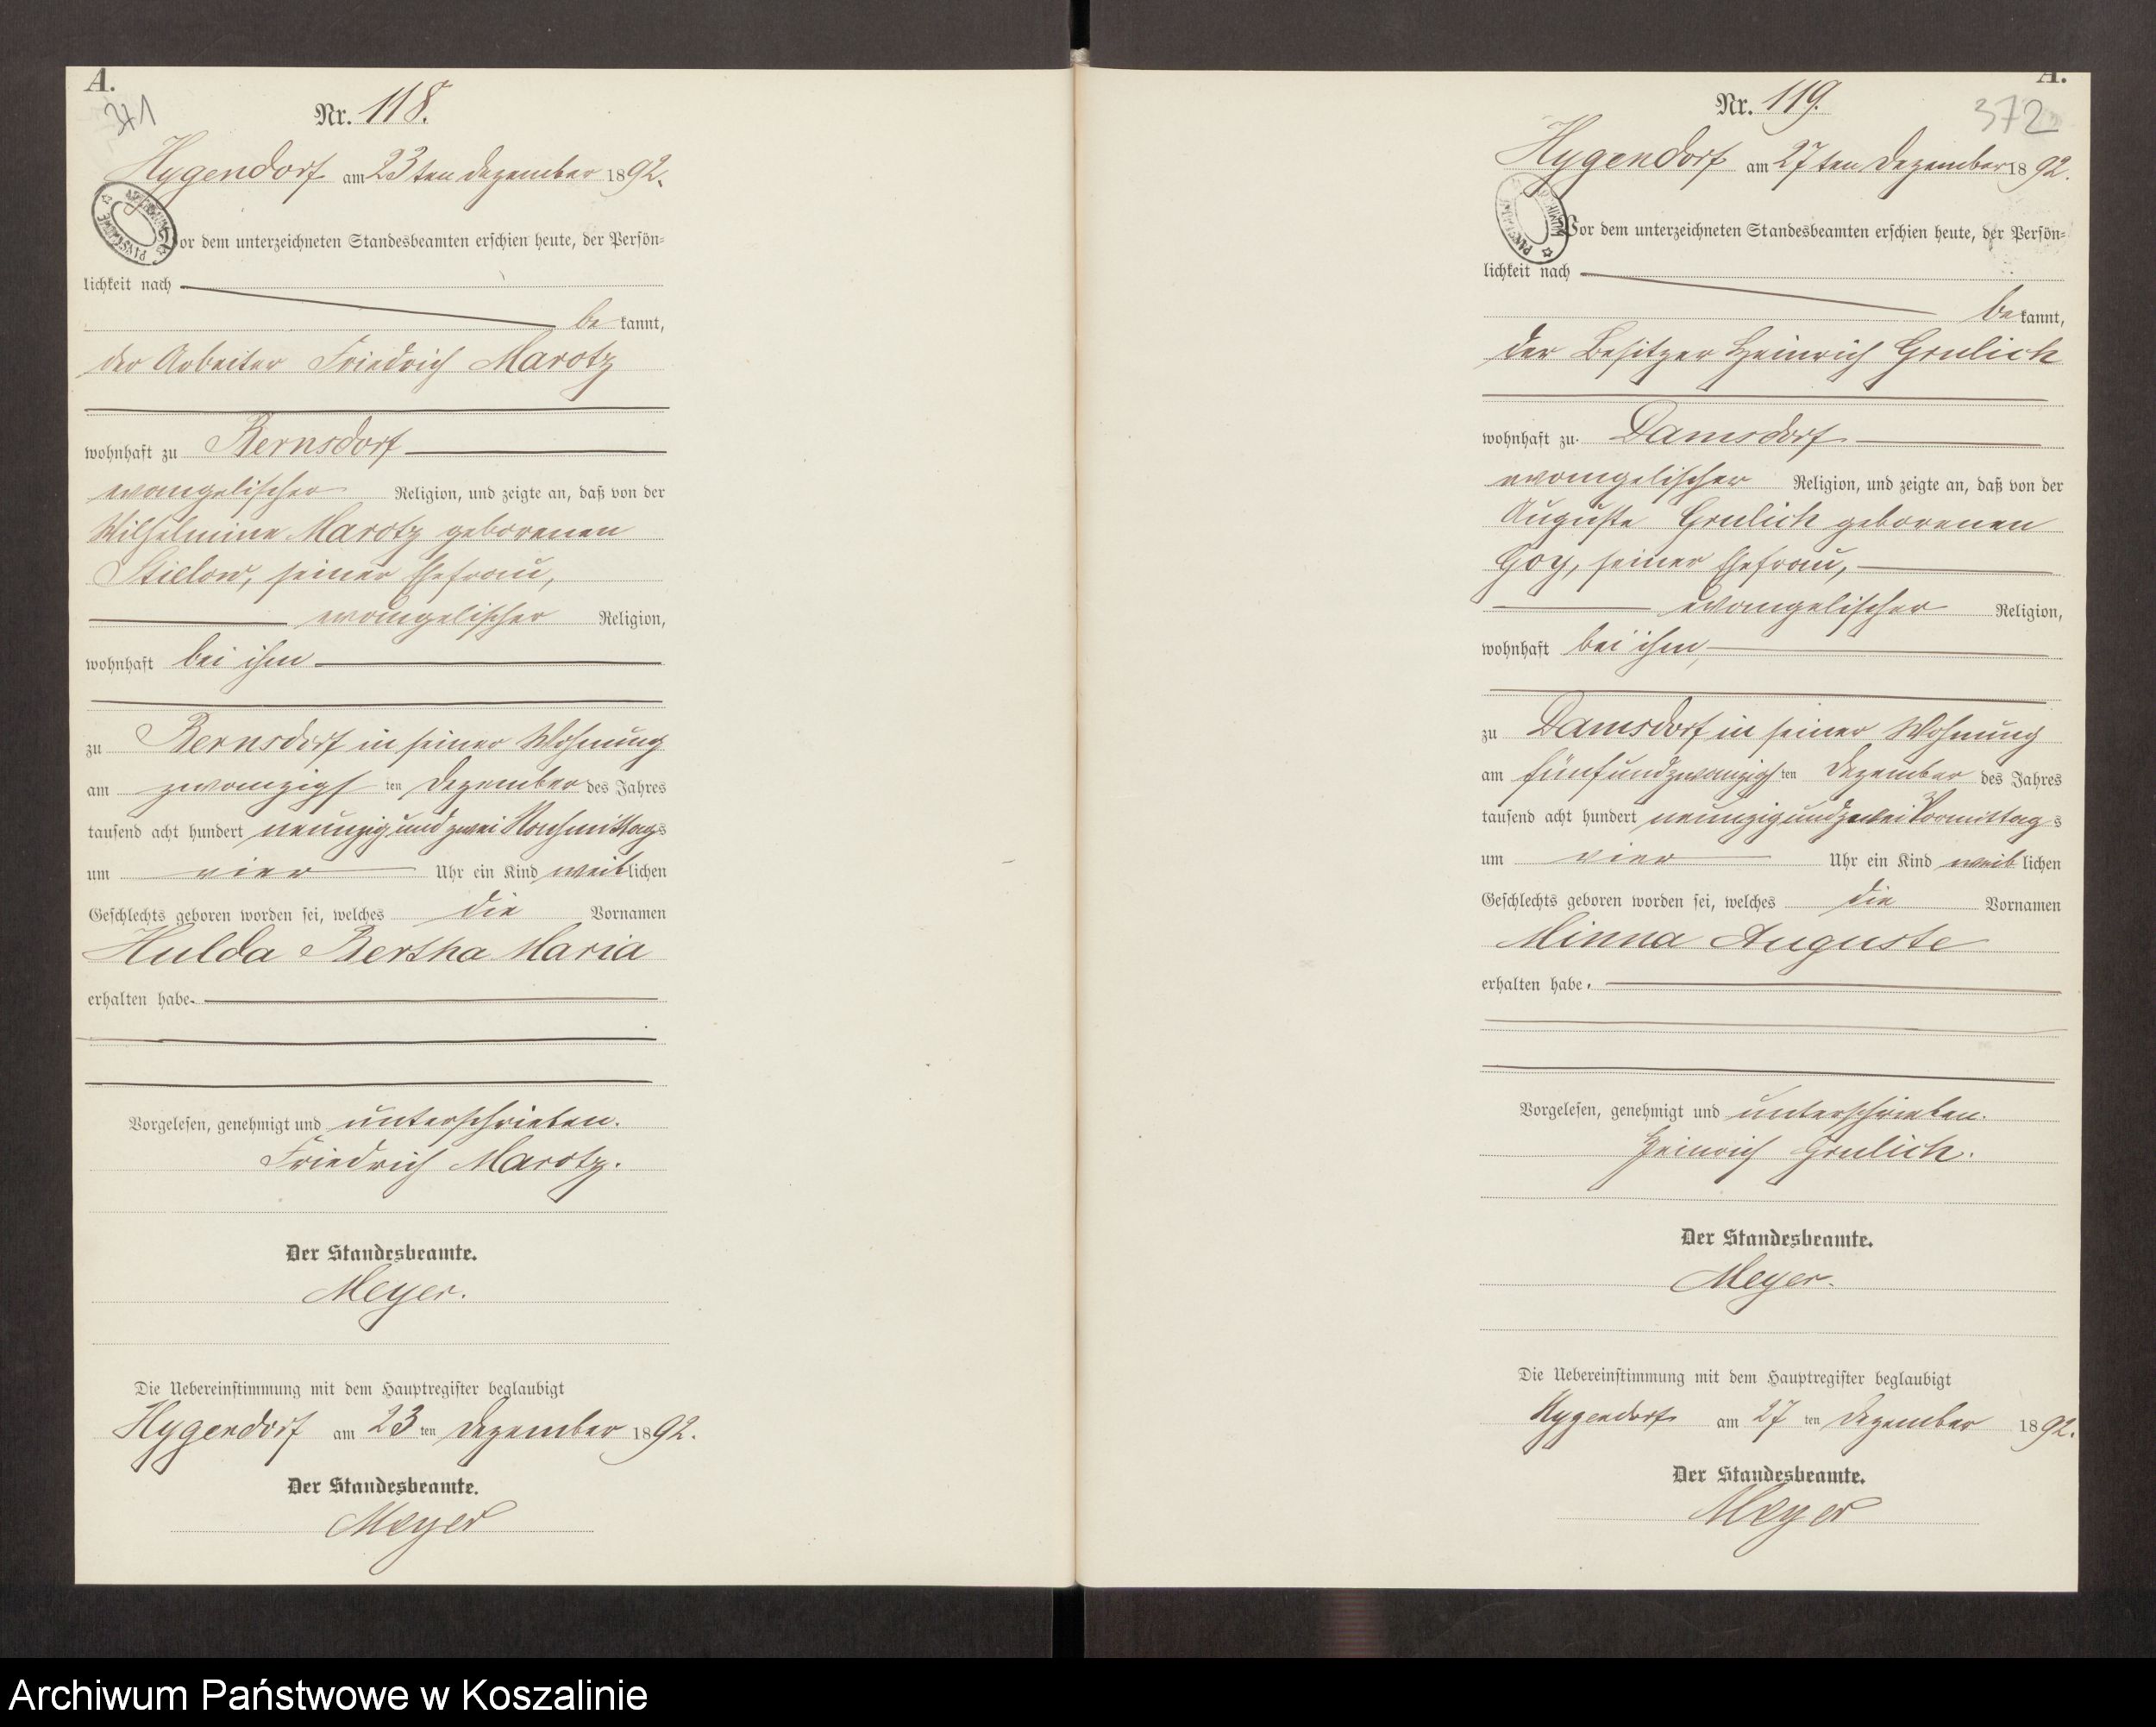 A.
371
Nr. 118.
Hygendorf am 23ten Dezember 1892.
Vor dem unterzeichneten Standesbeamten erschien heute, der Persön=
lichkeit nach
bekannt,
der Arbeiter Friedrich Marotz
wohnhaft zu Bernsdorf
evangelischer Religion, und zeigte an, daß von der
Wilhelmine Marotz geborenen
Stielow, seiner Ehefrau,
evangelischer Religion,
wohnhaft bei ihm
zu Bernsdorf in seiner Wohnung
am zwanzigsten Dezember des Jahres
tausend acht hundert neunzig und zwei Nachmittags
um vier Uhr ein Kind weiblichen
Geschlechts geboren worden sei, welches die Vornamen
Hulda Bertha Maria
erhalten habe.
Vorgelesen, genehmigt und unterschrieben.
Friedrich Marotz.
Der Standesbeamte.
Meyer.
Die Uebereinstimmung mit dem Hauptregister beglaubigt
Hygendorf am 23ten Dezember 1892.
Der Standesbeamte.
Meyer
A.
372
Nr. 119.
Hygendorf am 27ten Dezember 1892.
Vor dem unterzeichneten Standesbeamten erschien heute, der Persön=
lichkeit nach
bekannt,
der Besitzer Heinrich Grulich
wohnhaft zu Damsdorf
evangelischer Religion, und zeigte an, daß von der
Auguste Grulich geborenen
Goy, seiner Ehefrau,
evangelischer Religion,
wohnhaft bei ihm,
zu Damsdorf in seiner Wohnung
am fünfundzwanzigsten Dezember des Jahres
tausend acht hundert neunzig und zwei Vormittags
um vier Uhr ein Kind weiblichen
Geschlechts geboren worden sei, welches die Vornamen
Minna Auguste
erhalten habe.
Vorgelesen, genehmigt und unterschrieben.
Heinrich Grulich.
Der Standesbeamte.
Meyer.
Die Uebereinstimmung mit dem Hauptregister beglaubigt
Hygendorf am 27ten Dezember 1892.
Der Standesbeamte.
Meyer
Archiwum Państwowe w Koszalinie